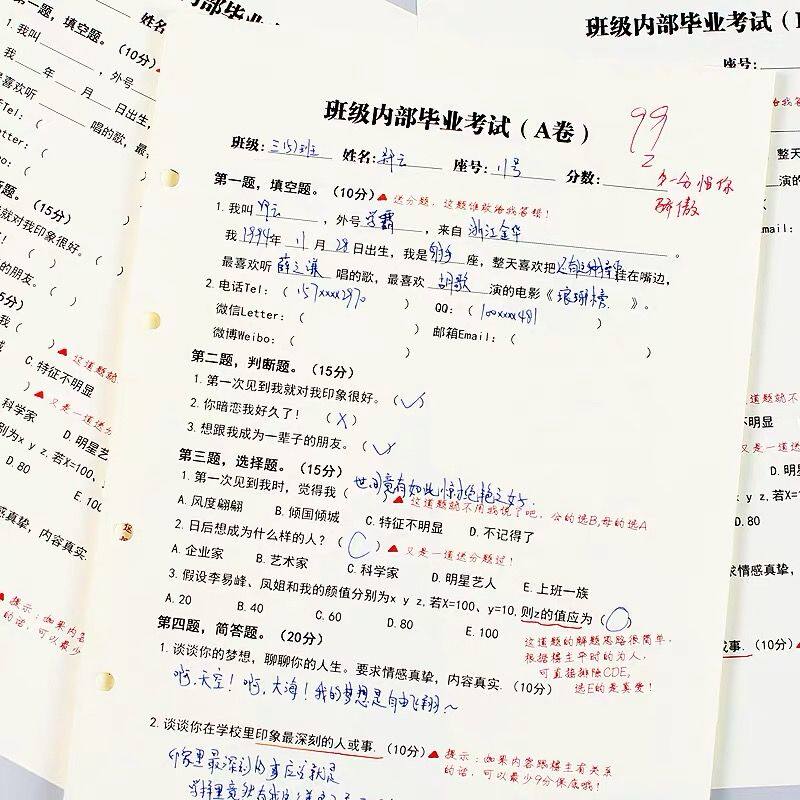 班级内部毕业考试（A卷）
99
班级: 三(5)班 姓名: 座号: 11号 分数:
多一分怕你
骄傲
第一题，填空题。（10分）▲ 送分题，这题谁敢给我答错！
1. 我叫 ，外号 学霸 ，来自 浙江金华 。
我 1994 年 11 月 28 日出生，我是 射手 座，整天喜欢把 挂在嘴边，
最喜欢听 薛之谦 唱的歌，最喜欢 胡歌 演的电影《 琅琊榜 》。
2. 电话Tel:（ 157xxxx2970 ） QQ:（ 100xxxx481 ）
微信Letter:（ ）
微博Weibo:（ ） 邮箱Email:（ ）
第二题，判断题。（15分）
1. 第一次见到我就对我印象很好。（✓）
2. 你暗恋我好久了！（X）
3. 想跟我成为一辈子的朋友。（✓）
第三题，选择题。（15分）
1. 第一次见到我时，觉得我（世间竟有如此惊才绝艳之女子.）
▲ 这道题就不用我说了吧，公的选B,母的选A
A. 风度翩翩 B. 倾国倾城 C. 特征不明显 D. 不记得了
2. 日后想成为什么样的人？（C）▲ 又是一道送分题过！
A. 企业家 B. 艺术家 C. 科学家 D. 明星艺人 E. 上班一族
3. 假设李易峰、凤姐和我的颜值分别为x y z,若X=100、y=10,则z的值应为（ ）
A. 20 B. 40 C. 60 D. 80 E. 100
这道题的解题思路很简单，
根据楼主平时的为人，
可直接排除CDE，
选E的是真爱！
第四题，简答题。（20分）
1. 谈谈你的梦想，聊聊你的人生。要求情感真挚，内容真实.（10分）
啊,天空！啊,大海！我的梦想是自由飞翔～
2. 谈谈你在学校里印象最深刻的人或事.（10分）
▲ 提示：如果内容跟楼主有关系
的话，可以最少9分保底哦！
印象里最深刻的事应该就是
第一题，填空题。（10分）
1. 我叫 ，外号
我 年 月 日出生，
喜欢听 唱的歌，最
Tel:（
Letter:（
Weibo:（
（15分）
就对我印象很好。（
！（
的朋友。（
我（ ）▲ 这道题就
C. 特征不明显
）▲ 又是一道送分
科学家 D. 明星艺
别为x y z,若X=100、
D. 80 E. 100
感真挚，内容真实.
▲ 提示：如果内容
的话，可以最少
班级内部毕业考试（
座号:
整天
演的
mail:（
不明显
又是一道
D. 明
x y z,若
D. 80
求情感真挚，
或事.（10分）▲